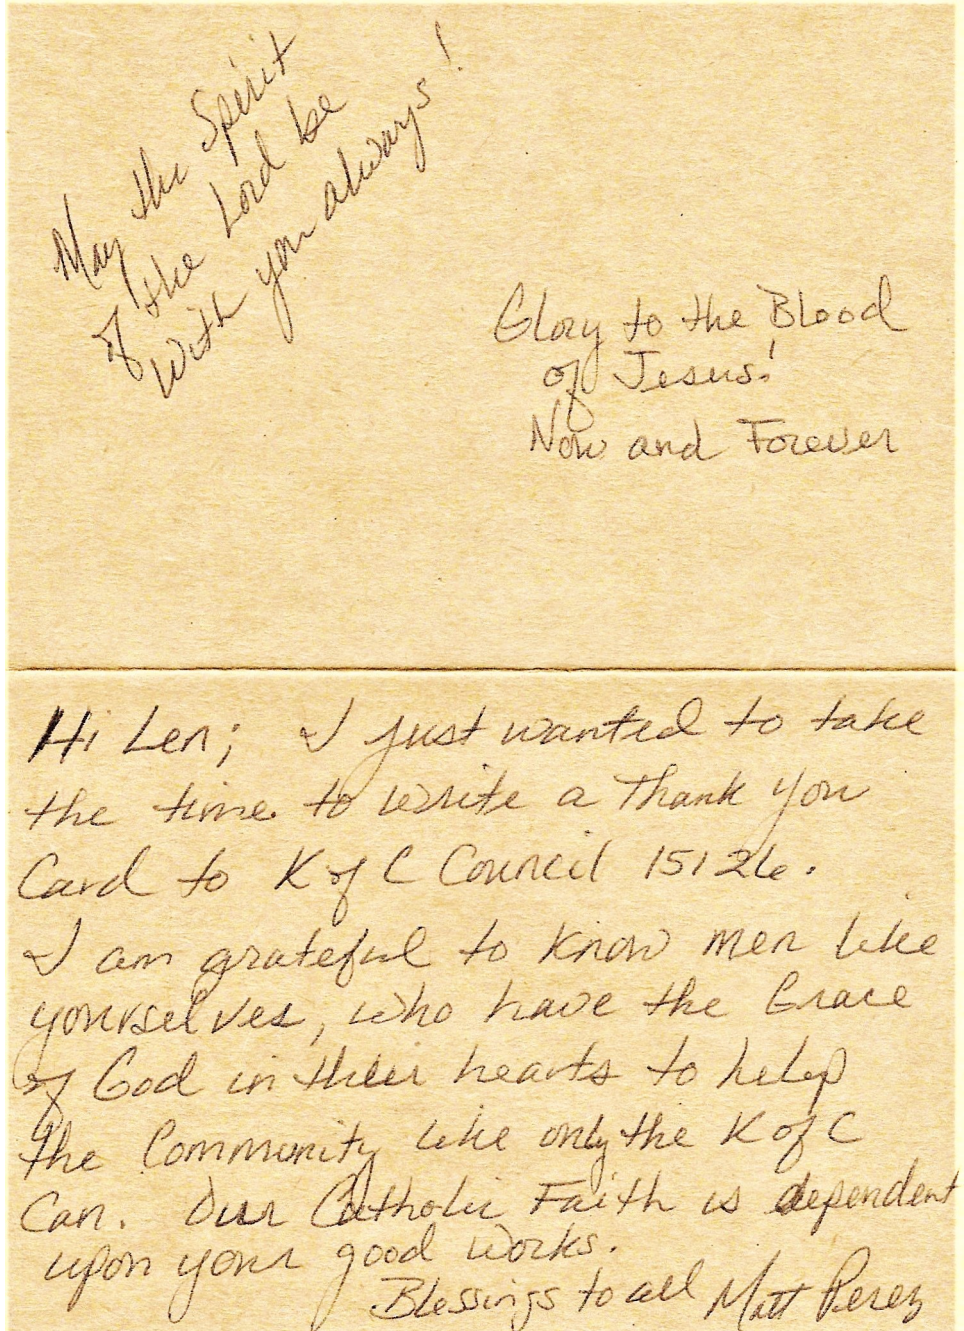 May the Spirit
of the Lord be
with you always!
Glory to the Blood
of Jesus!
Now and Forever
Hi Len; I just wanted to take
the time to write a Thank you
Card to K of C Council 15126.
I am grateful to know men like
yourselves, who have the Grace
of God in their hearts to help
the Community like only the K of C
Can. Our Catholic Faith is dependent
upon your good works.
Blessings to all Matt Perez